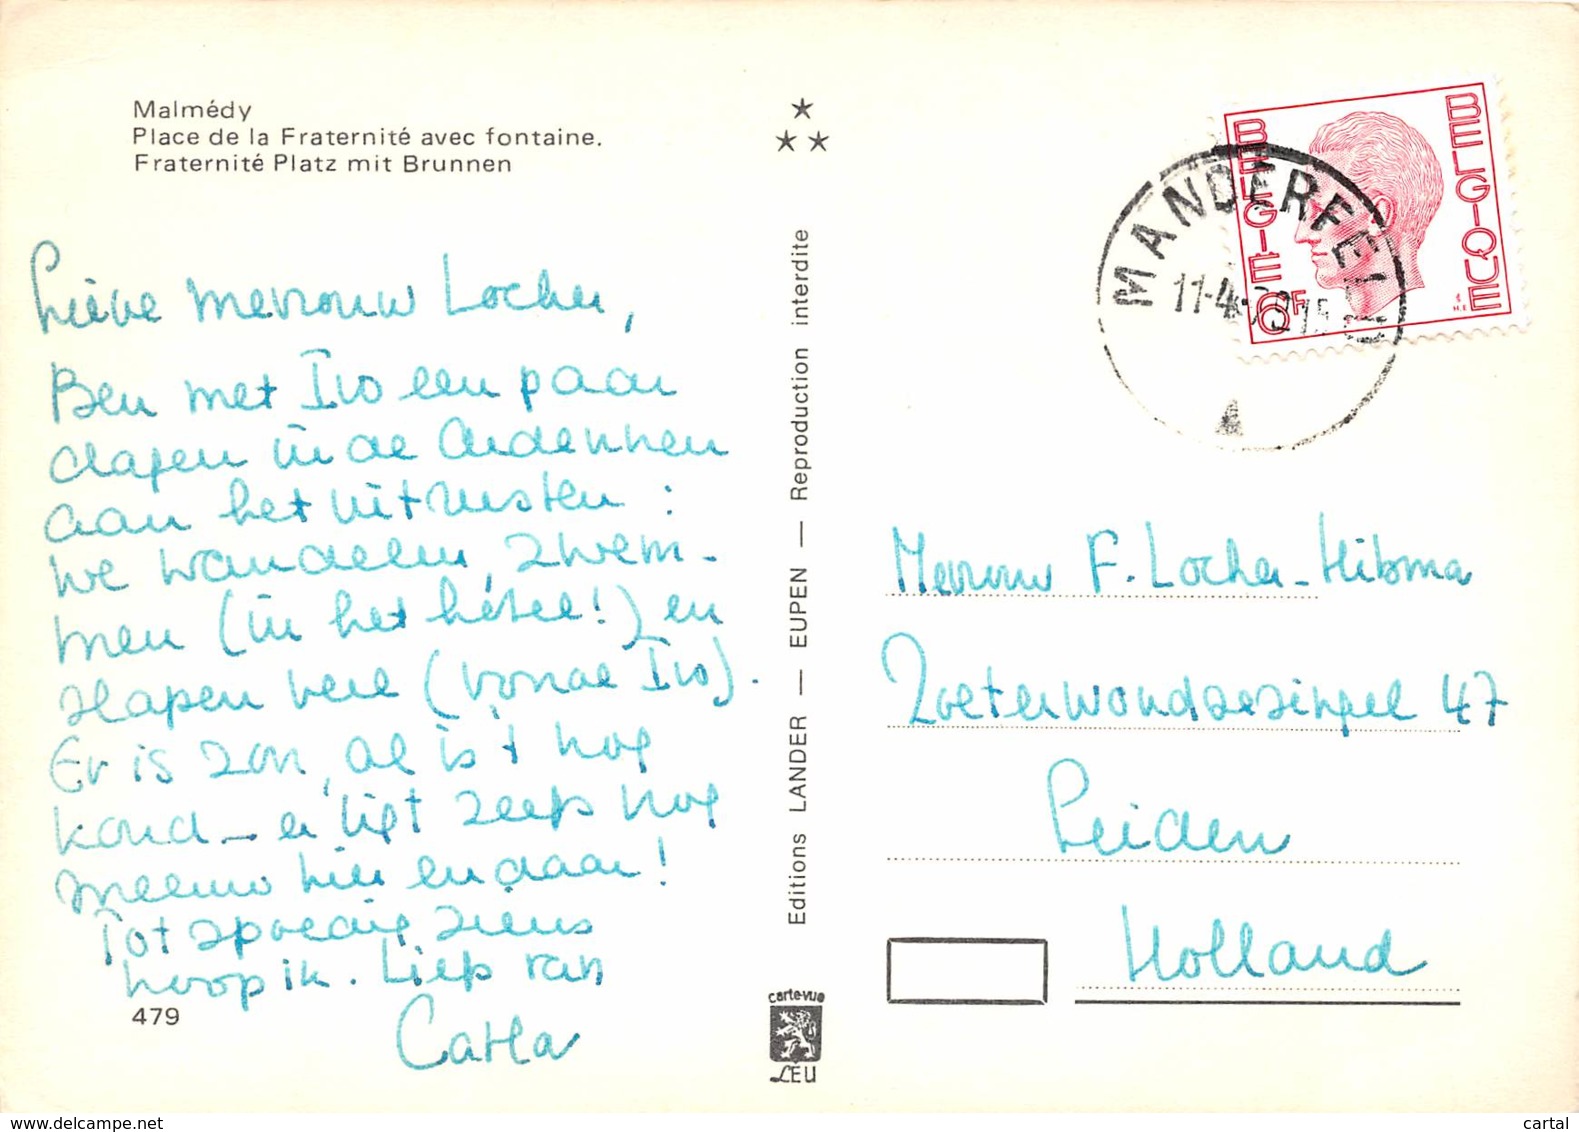 Malmédy
Place de la Fraternité avec fontaine.
Fraternité Platz mit Brunnen
Lieve Mevrouw Locher,
Ben met Ivo een paar
dagen in de Ardennen
aan het uitrusten:
we wandelen, zwem-
men (in het hotel!) en
slapen veel (vooral Ivo).
Er is zon, al is 't nog
koud - er ligt zelfs nog
sneeuw hier en daar!
Tot spoedig ziens
hoop ik. Liefs van
Carla
479
Editions LANDER — EUPEN — Reproduction interdite
carte-vue
LÉU
BELGIE BELGIQUE
6F
MANDERFELD
11-4
Mevrouw F. Locher-Hibma
Zoeterwoudsesingel 47
Leiden
Holland
© delcampe.net
cartal